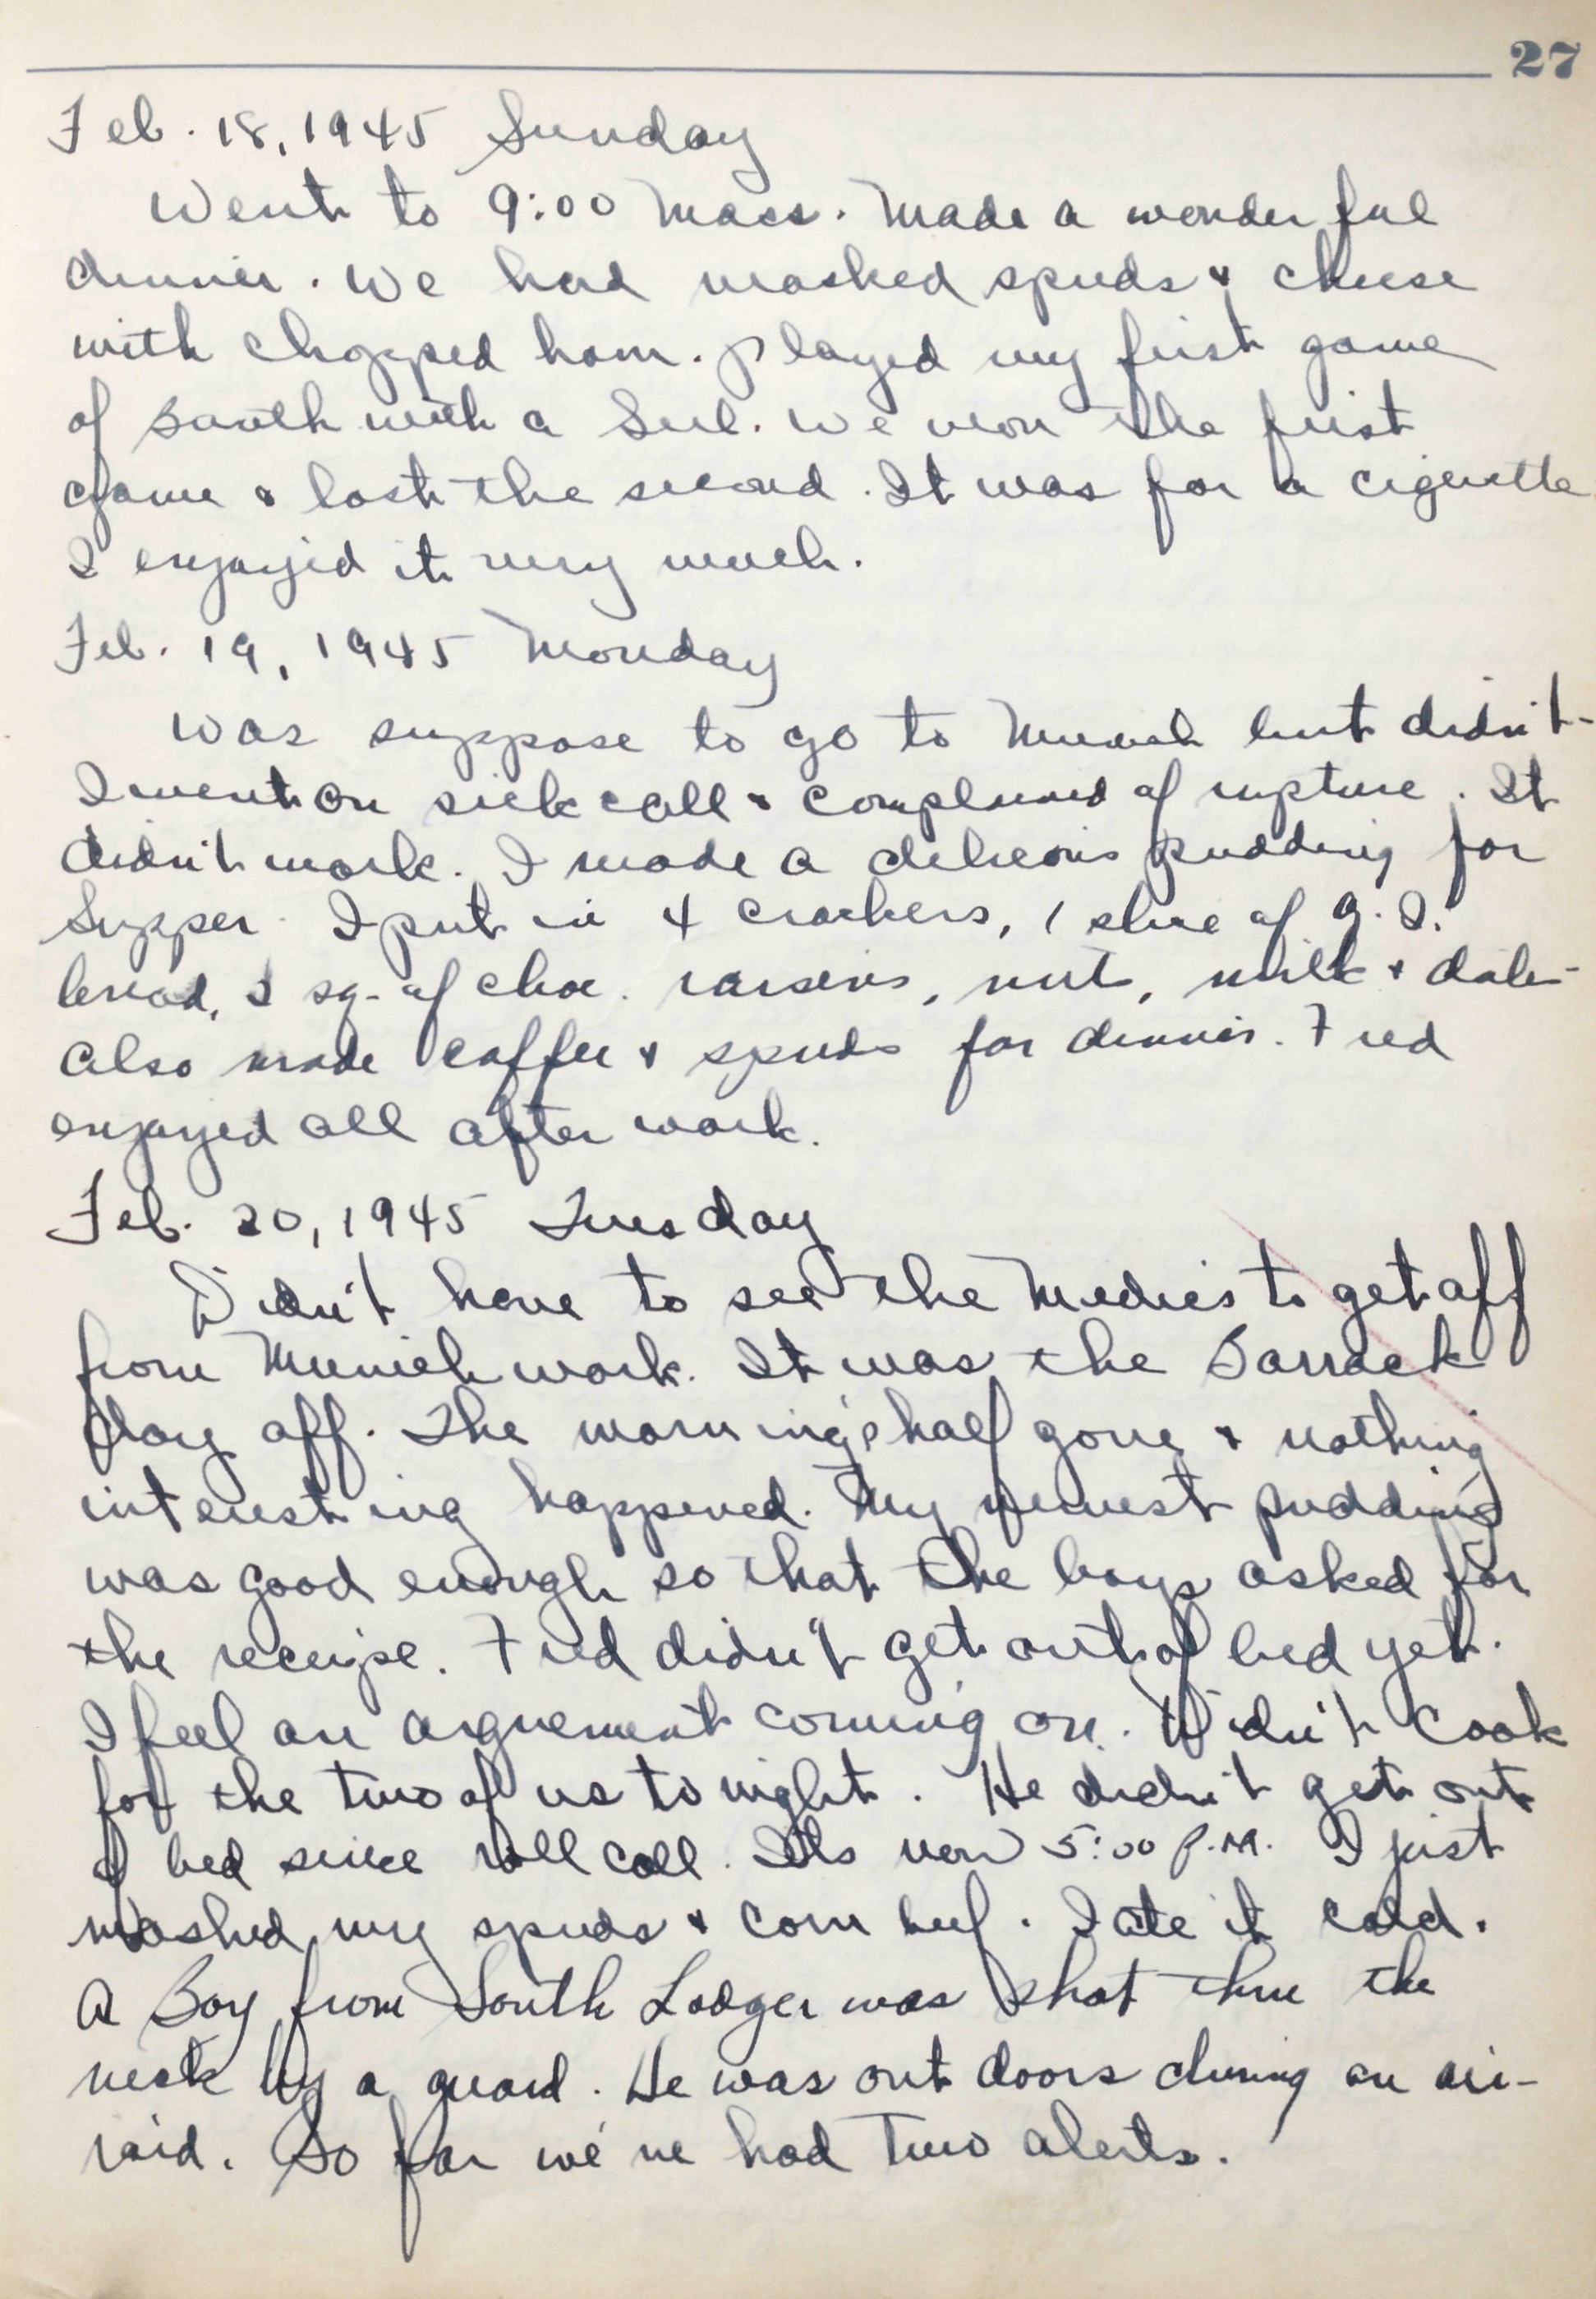 27
Feb. 18, 1945 Sunday
Went to 9:00 Mass. Made a wonderful
dinner. We had mashed spuds & cheese
with chopped ham. Played my first game
of with a We won the first
game & lost the second. It was for a cigerette
I enjoyed it very much.
Feb. 19, 1945 Monday
Was suppose to go to Munich but didn't-
I went on sick call & complained of rupture. It
didn't work. I made a delicious pudding for
Supper. I put in 4 crackers, 1 slice of G.I.
bread, 2 sq. of choc. raisins, nuts, milk & dates
Also made coffee & spuds for dinner. Fred
enjoyed all after work.
Feb. 20, 1945 Tuesday
Didn't have to see the Medics to get off
from Munich work. It was the Barrack
day off. The morning's half gone & nothing
interesting happened. My newest pudding
was good enough so that the boys asked for
the receipe. Fred didn't get out of bed yet.
I feel an arguement coming on. Didn't cook
for the two of us tonight. He didn't get out
of bed since roll call. Its now 5:00 P.M. I just
mashed my spuds & corn beef. I ate it cold.
A Boy from South Lodger was shot thru the
neck by a guard. He was out doors during an air-
raid. So far we've had Two alerts.